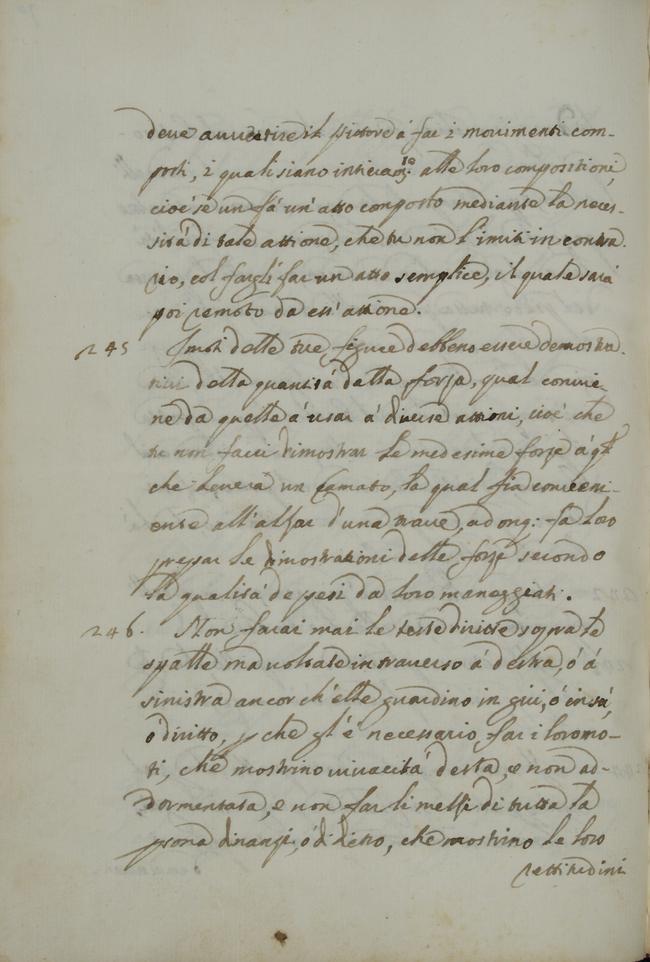 deue auuertire il pittore á far i mouimenti com-
posti, i quali siano intieram.te alle loro compositioni,
cioé se un fá un'atto composto mediante la neces-
sitá di tale attione, che tu non l'imiti in contra-
rio, col fargli far un atto semplice, il quale sará
poi remoto da ess' attione.
245 I moti delle tue figure debbeno essere demostra-
tiui della quantitá della forza, qual conuie-
ne da quelle á usar á diuerse attioni, cioé che
tu non facci dimostrar le medesime forze á q.l
che leuerá un Camato, la qual fia conueni-
ente all'alzar d'una traue, adonq: fa loro
prepar le dimostrationi delle forze secondo
la qualitá de pesi da loro maneggiati.
246. Non farai mai le teste diritte sopra le
spalle ma uoltate in trauerso á destra, ó á
sinistra ancor ch'elle guardino in giú, ó in sú,
ó diritto, p che gl'é necessario far i loro mo-
ti, che mostrino uiuacitá desta, e non ad-
dormentata, e non far li mezzi di tutta la
psona dinanzi, ó di dietro, che mostrino le loro
rettitudini